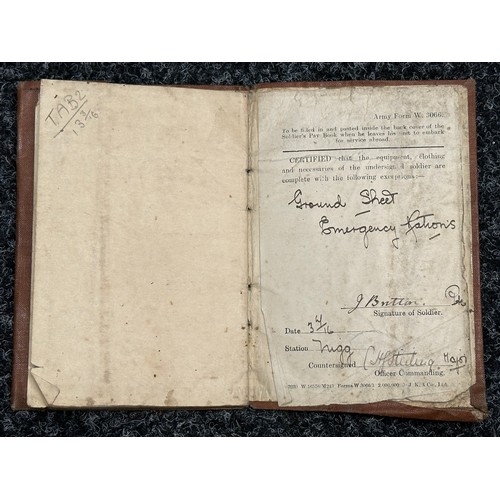 TAB2
13 3/16
Army Form W. 3066.
To be filled in and pasted inside the back cover of the
Soldier's Pay Book when he leaves his unit to embark
for service abroad.
CERTIFIED that the equipment, clothing
and necessaries of the undersigned soldier are
complete with the following exceptions:—
Ground Sheet
Emergency Rations
J Britton.
Signature of Soldier.
Date 3/4/16
Station
Countersigned Major
Officer Commanding.
Forms W. 3066/1 2,000,000 J. K. & Co., Ltd.